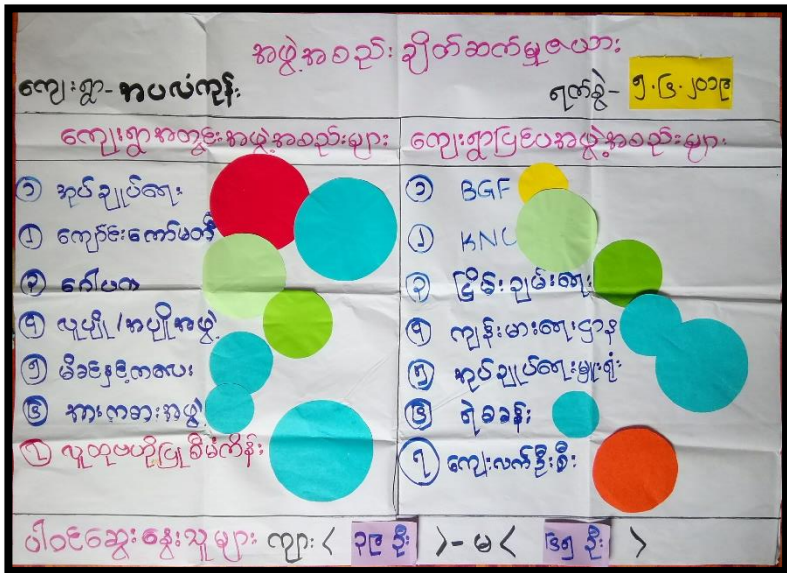 အဖွဲ့အစည်းချိတ်ဆက်မှုဇယား
ကျေးရွာ-အပလံကုန်း
ရက်စွဲ- ၅.၆.၂၀၁၉
ကျေးရွာအတွင်းအဖွဲ့အစည်းများ
၁ အုပ်ချုပ်ရေး
၂ ကျောင်းကော်မတီ
၃ ဂေါပက
၄ လူပျို/အပျိုအဖွဲ့
၅ မိခင်နှင့်ကလေး
၆ အားကစားအဖွဲ့
၇ လူထုဗဟိုပြုစီမံကိန်း
ကျေးရွာပြင်ပအဖွဲ့အစည်းများ
၁ BGF
၂ KNU
၃ ငြိမ်းချမ်းရေး
၄ ကျန်းမာရေးဌာန
၅ အုပ်ချုပ်ရေးမှူးရုံး
၆ ရဲစခန်း
၇ ကျေးလက်ဦးစီး
ပါဝင်ဆွေးနွေးသူများ ကျား < ၃၉ ဦး >-မ < ၆၅ ဦး >